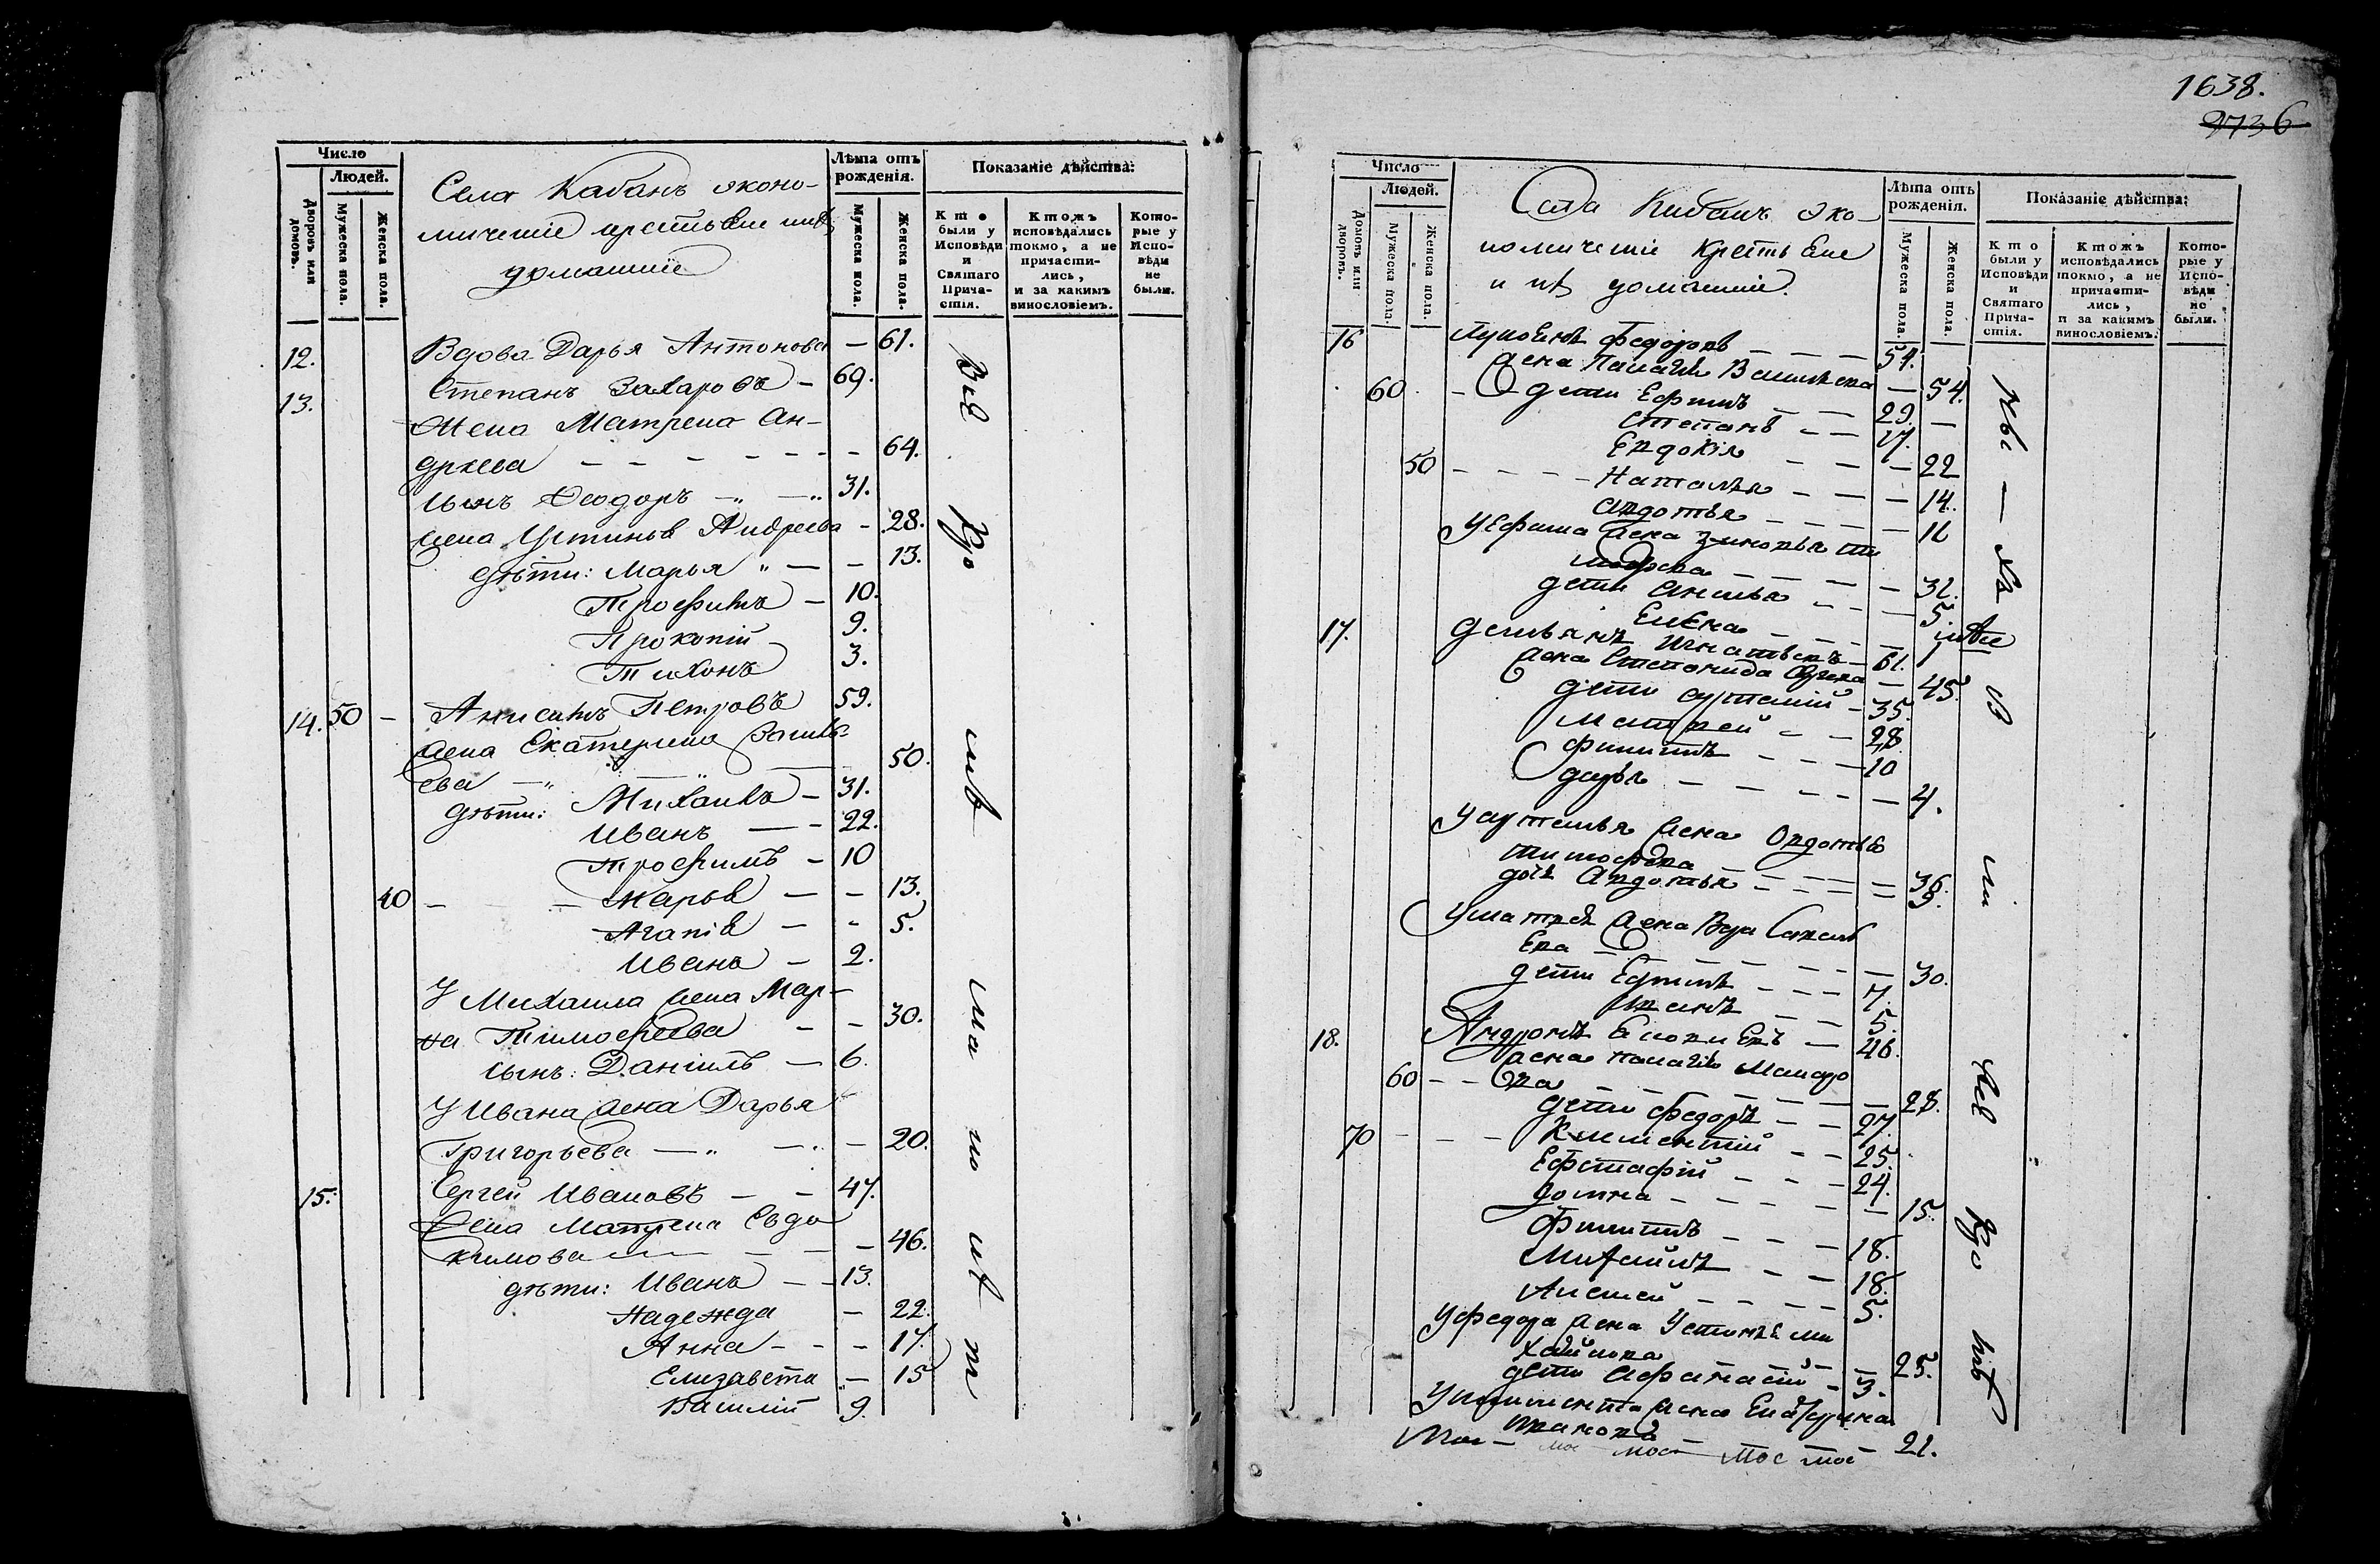 Число
Людей.
Дворовъ или домовъ.
Мужеска пола.
Женска пола.
Села Кабанъ эконо-
мическіе крестьяне и ихъ
домашніе
Лѣта отъ рожденія.
Мужеска пола.
Женска пола.
Показаніе дѣйства:
Кто были у Исповѣди и Святаго Прича-стія.
Ктожъ исповѣдались токмо, а не причасти-лись, и за какимъ винословіемъ.
Кото-рые у Испо-вѣди не были.
12. Вдова Дарья Антонова — 61.
13. Степанъ Захаровъ — 69.
Жена Матрена Ан-
дреева — 64.
Сынъ Ѳеодоръ — 31.
жена Устинья Андреева — 28.
дѣти: Марья — 13.
Трофимъ — 10.
Прокопій 9.
Тихонъ 3.
14. 50 — Анисимъ Петровъ 59.
жена Екатерина Василь-
ева 50.
дѣти: Михаилъ — 31.
Иванъ — 22.
Трофимъ — 10
40 — Марья — 13.
Агапія — 5.
Иванъ — 2.
У Михаила жена Мар-
ѳа Тимофеева — 30.
сынъ: Даніилъ — 6.
У Ивана жена Дарья
Григорьева — 20.
15. Сергей Ивановъ — 47.
жена Матрена Евдо
кимова — 46.
дѣти: Иванъ — 13.
Надежда — 22.
Анна — 17.
Елизавета — 15
Василій 9.
1638.
Число
Людей.
Домовъ или дворовъ.
Мужеска пола.
Женска пола.
Села Кабанъ эко-
номическіе крестьяне
и ихъ домашніе.
Лѣта отъ рожденія.
Мужеска пола.
Женска пола.
Показаніе дѣйства:
Кто были у Исповѣди и Святаго Прича-стія.
Ктожъ исповѣдались токмо, а не причасти-лись, и за какимъ винословіемъ.
Кото-рые у Испо-вѣди не были.
16 Федоровъ — 54.
жена Палагія Васильева — 54.
60 — дети Ефимъ — 29.
Степанъ — 17.
Евдокія — 22
50 — Наталья — 14.
Авдотья — 11
У Ефима жена Зиновья Ти
мофева — 32.
дети Анисья — 5.
Елена — 1
17. Демьянъ Игнатьевъ — 61.
жена Степонида — 45.
дети Артемій — 35.
Матвей — 28.
Филипъ — 10
Дарья — 4.
У Артемья жена Овдотья
Тимофева — 36.
дочь Авдотья — 9.
У Матвея жена Савель
Ева — 30.
дети Ефимъ — 7.
Иванъ — 5.
18. Андронъ — 46.
жена Палагія
60 — ова — 28.
дети Федоръ — 27.
70 — Климентій — 25.
Ефстафій — 24.
Домна — 15.
Филипъ — 18.
Михаилъ — 18.
Алексей — 5.
У Федора жена Устинья Ми
хайлова — 25.
дети Афанасій — 3.
У Климента жена Екатерина
Иванова — 21.